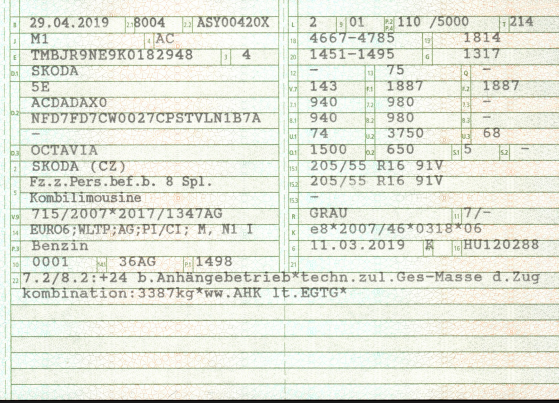 B 29.04.2019 2.1 8004 2.2 ASY00420X
J M1 4 AC
E TMBJR9NE9K0182948 3 4
D.1 SKODA
5E
D.2 ACDADAX0
NFD7FD7CW0027CPSTVLN1B7A
–
D.3 OCTAVIA
2 SKODA (CZ)
5 Fz.z.Pers.bef.b. 8 Spl.
Kombilimousine
V.9 715/2007*2017/1347AG
14 EURO6;WLTP;AG;PI/CI; M, N1 I
P.3 Benzin
10 0001 14.1 36AG P.1 1498
L 2 9 01 P.2 P.4 110 /5000 T 214
18 4667-4785 19 1814
20 1451-1495 G 1317
12 – 13 75 Q –
V.7 143 F.1 1887 F.2 1887
7.1 940 7.2 980 7.3 –
8.1 940 8.2 980 8.3 –
U.1 74 U.2 3750 U.3 68
O.1 1500 O.2 650 S.1 5 S.2 –
15.1 205/55 R16 91V
15.2 205/55 R16 91V
15.3 –
R GRAU 11 7/–
K e8*2007/46*0318*06
6 11.03.2019 17 K 16 HU120288
21
22 7.2/8.2:+24 b.Anhängebetrieb*techn.zul.Ges-Masse d.Zug
kombination:3387kg*ww.AHK lt.EGTG*